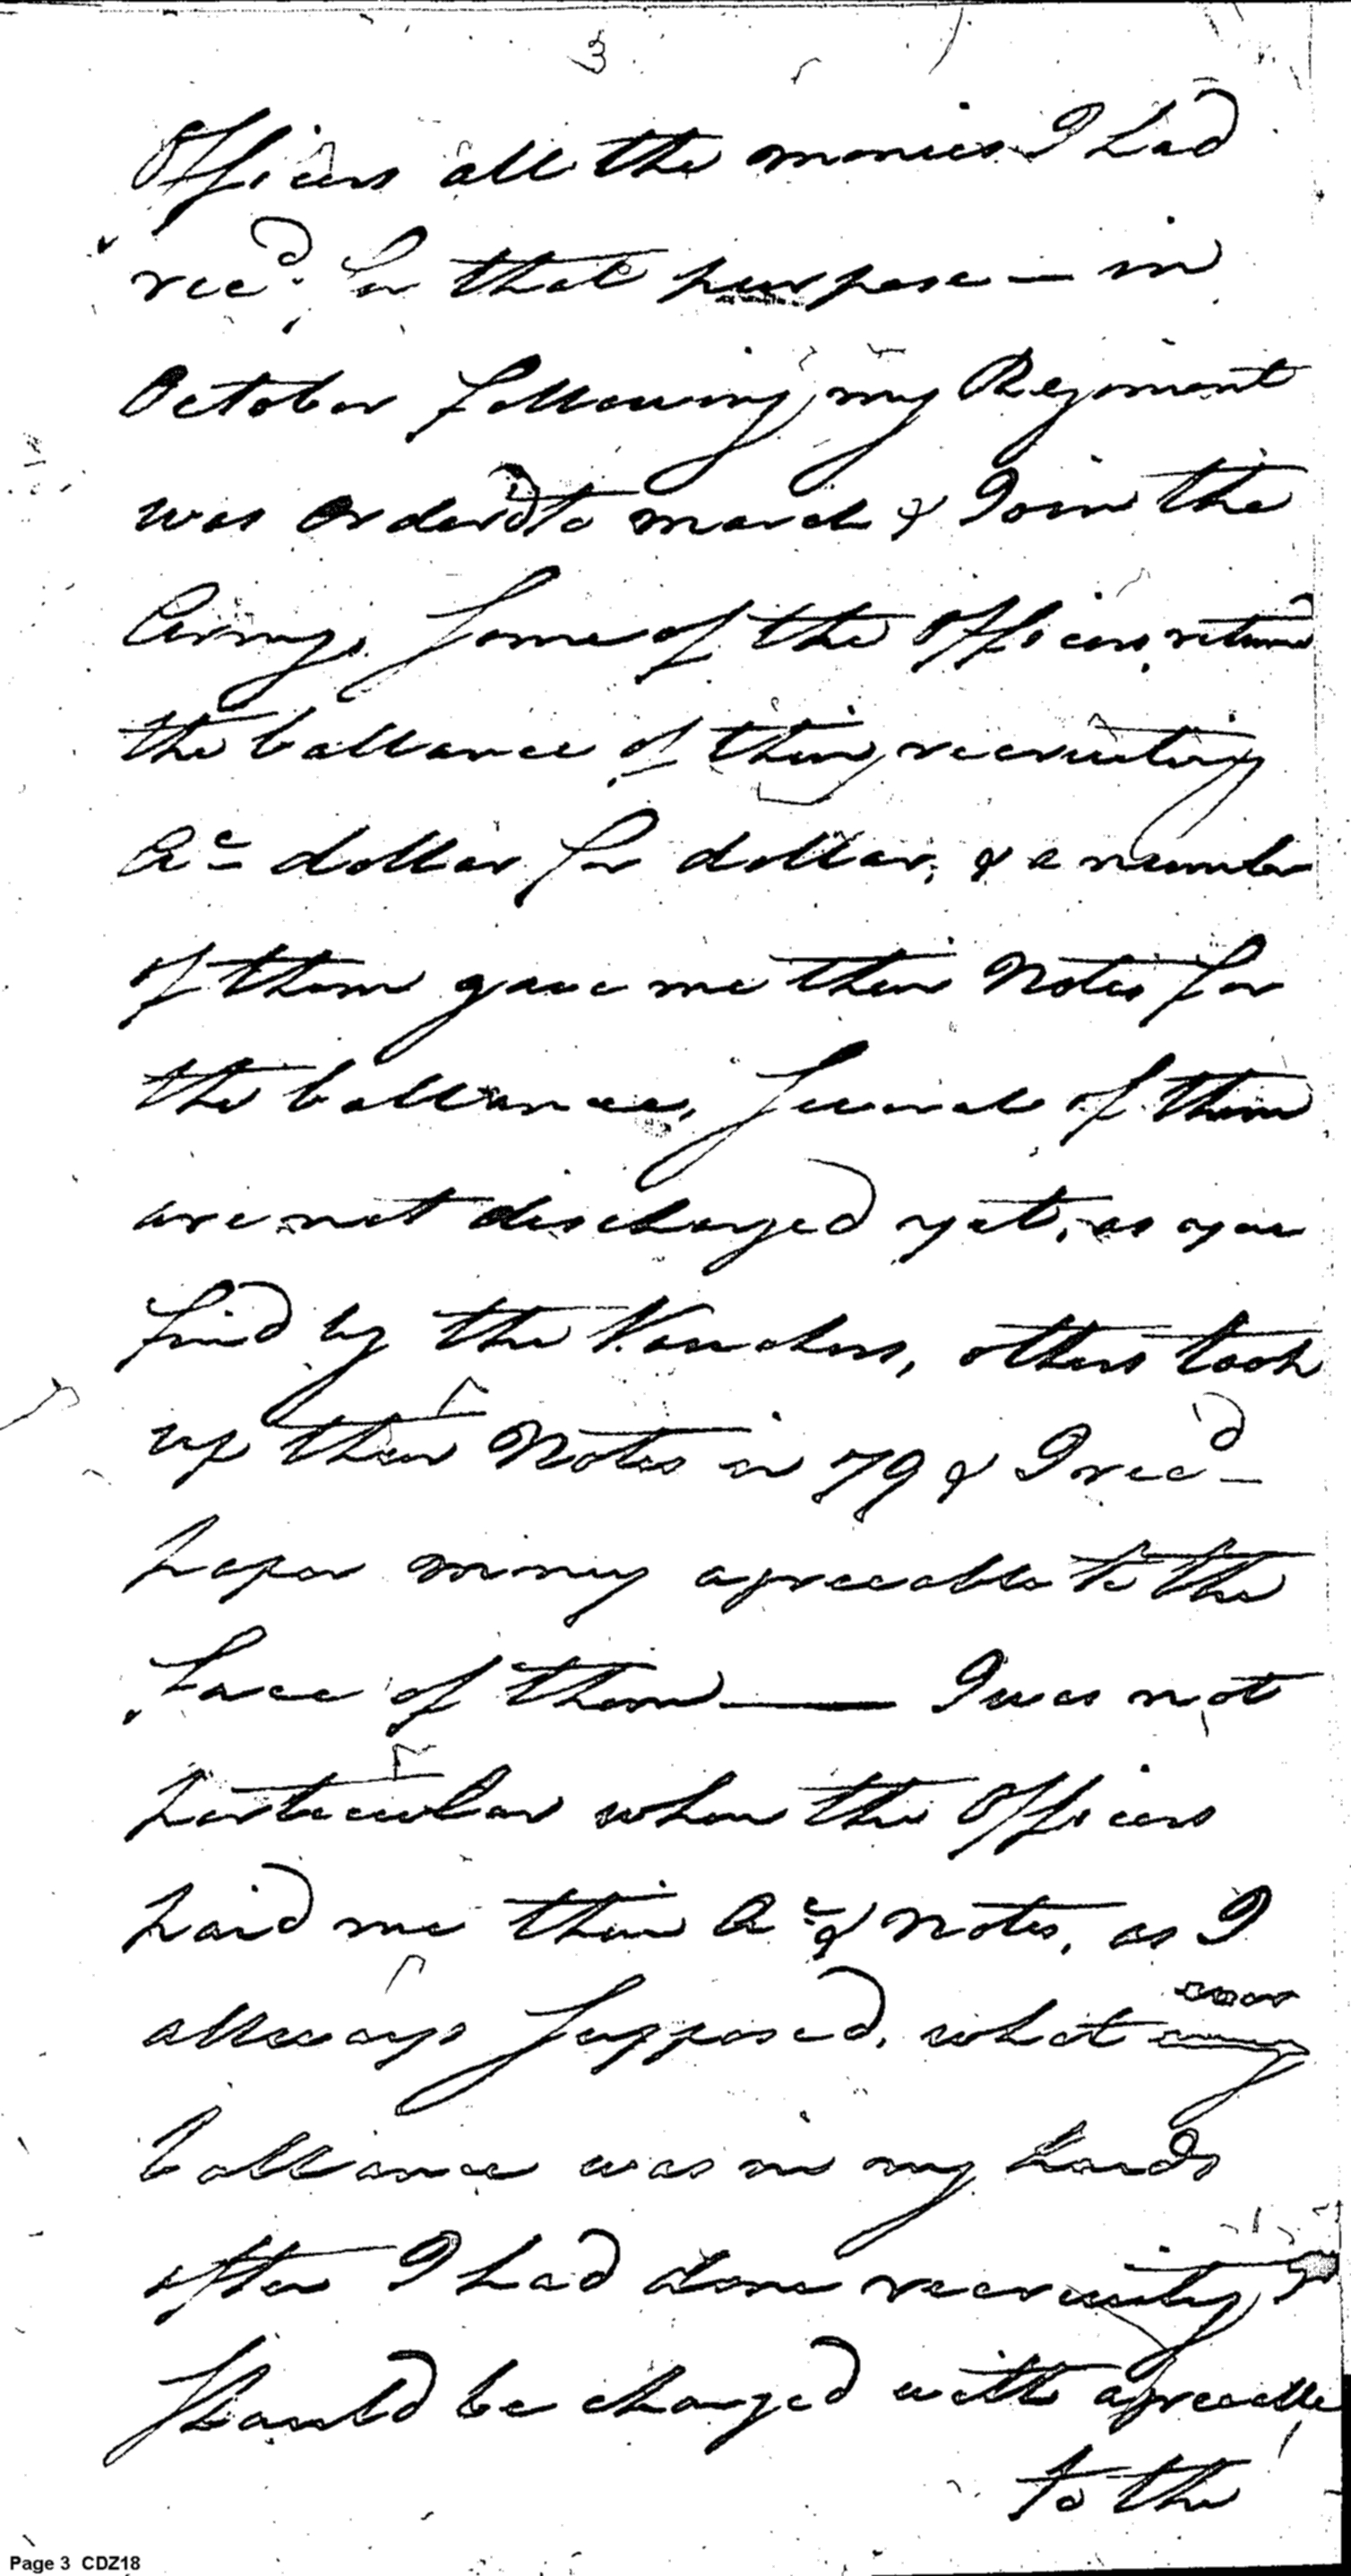 3
Officers all the monies I had
recd. for that purpose — in
October following my Regiment
was Orderd to march & Join the
Army. Some of the Officers returnd
the ballance of their recruiting
Ac dollar for dollar, & a number
of them gave me their Notes for
the ballance, Several of them
are not discharged yet, as you
find by the Vouchers, others took
up their Notes in 79 & I recd
paper money agreeable to the
face of them —— I was not
particular when the Officers
paid me their Ac & Notes, as I
allways Supposed, what
ballance was in my hands
after I had done recruiting I
Should be charged with agreeable
to the
Page 3 CDZ18